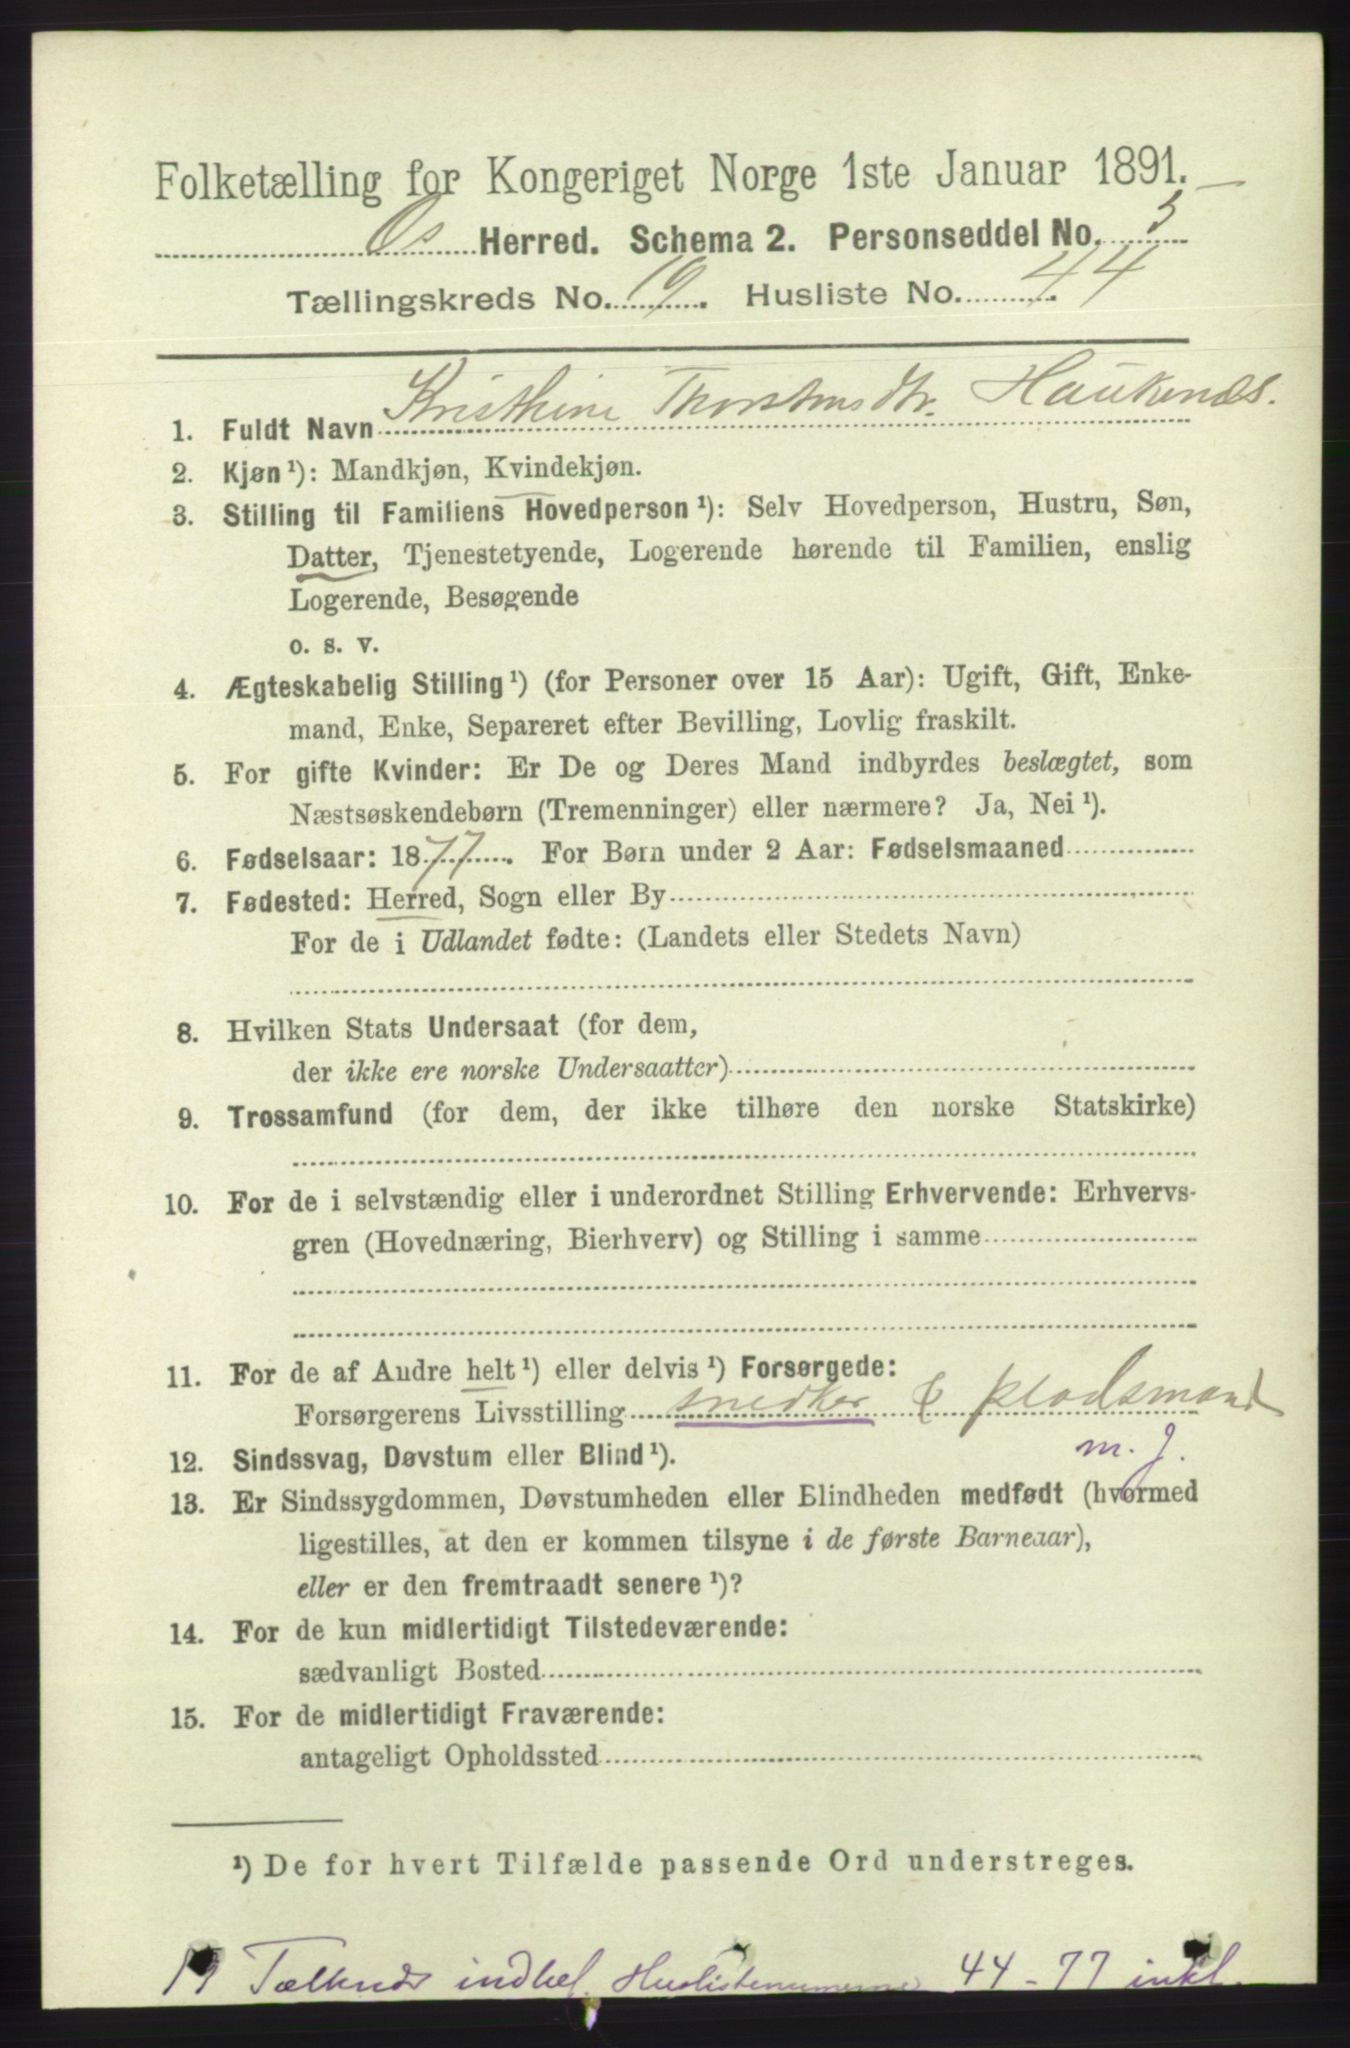 Folketælling for Kongeriget Norge 1ste Januar 1891.
Os Herred. Schema 2. Personseddel No. 5
Tællingskreds No. 19. Husliste No. 44
1. Fuldt Navn Kristhine Thorstensdtr. Haukenæs.
2. Kjøn ¹): Mandkjøn, Kvindekjøn.
3. Stilling til Familiens Hovedperson ¹): Selv Hovedperson, Hustru, Søn,
Datter, Tjenestetyende, Logerende hørende til Familien, enslig
Logerende, Besøgende
o. s. v.
4. Ægteskabelig Stilling ¹) (for Personer over 15 Aar): Ugift, Gift, Enke-
mand, Enke, Separeret efter Bevilling, Lovlig fraskilt.
5. For gifte Kvinder: Er De og Deres Mand indbyrdes beslægtet, som
Næstsøskendebørn (Tremenninger) eller nærmere? Ja, Nei ¹).
6. Fødselsaar: 1877. For Børn under 2 Aar: Fødselsmaaned
7. Fødested: Herred, Sogn eller By
For de i Udlandet fødte: (Landets eller Stedets Navn)
8. Hvilken Stats Undersaat (for dem,
der ikke ere norske Undersaatter)
9. Trossamfund (for dem, der ikke tilhøre den norske Statskirke)
10. For de i selvstændig eller i underordnet Stilling Erhvervende: Erhvervs-
gren (Hovednæring, Bierhverv) og Stilling i samme
11. For de af Andre helt ¹) eller delvis ¹) Forsørgede:
Forsørgerens Livsstilling snedker & pladsmand
m. J.
12. Sindssvag, Døvstum eller Blind ¹).
13. Er Sindssygdommen, Døvstumheden eller Blindheden medfødt (hvormed
ligestilles, at den er kommen tilsyne i de første Barneaar),
eller er den fremtraadt senere ¹)?
14. For de kun midlertidigt Tilstedeværende:
sædvanligt Bosted
15. For de midlertidigt Fraværende:
antageligt Opholdssted
¹) De for hvert Tilfælde passende Ord understreges.
19 Tælkreds indbef. Huslistenumerne 44-77 inkl.